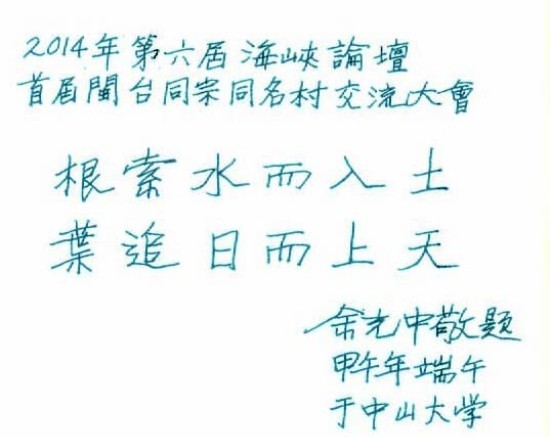 2014年第六届海峽論壇
首届閩台同宗同名村交流大會
根索水而入土
葉追日而上天
余光中敬題
甲午年端午
于中山大学